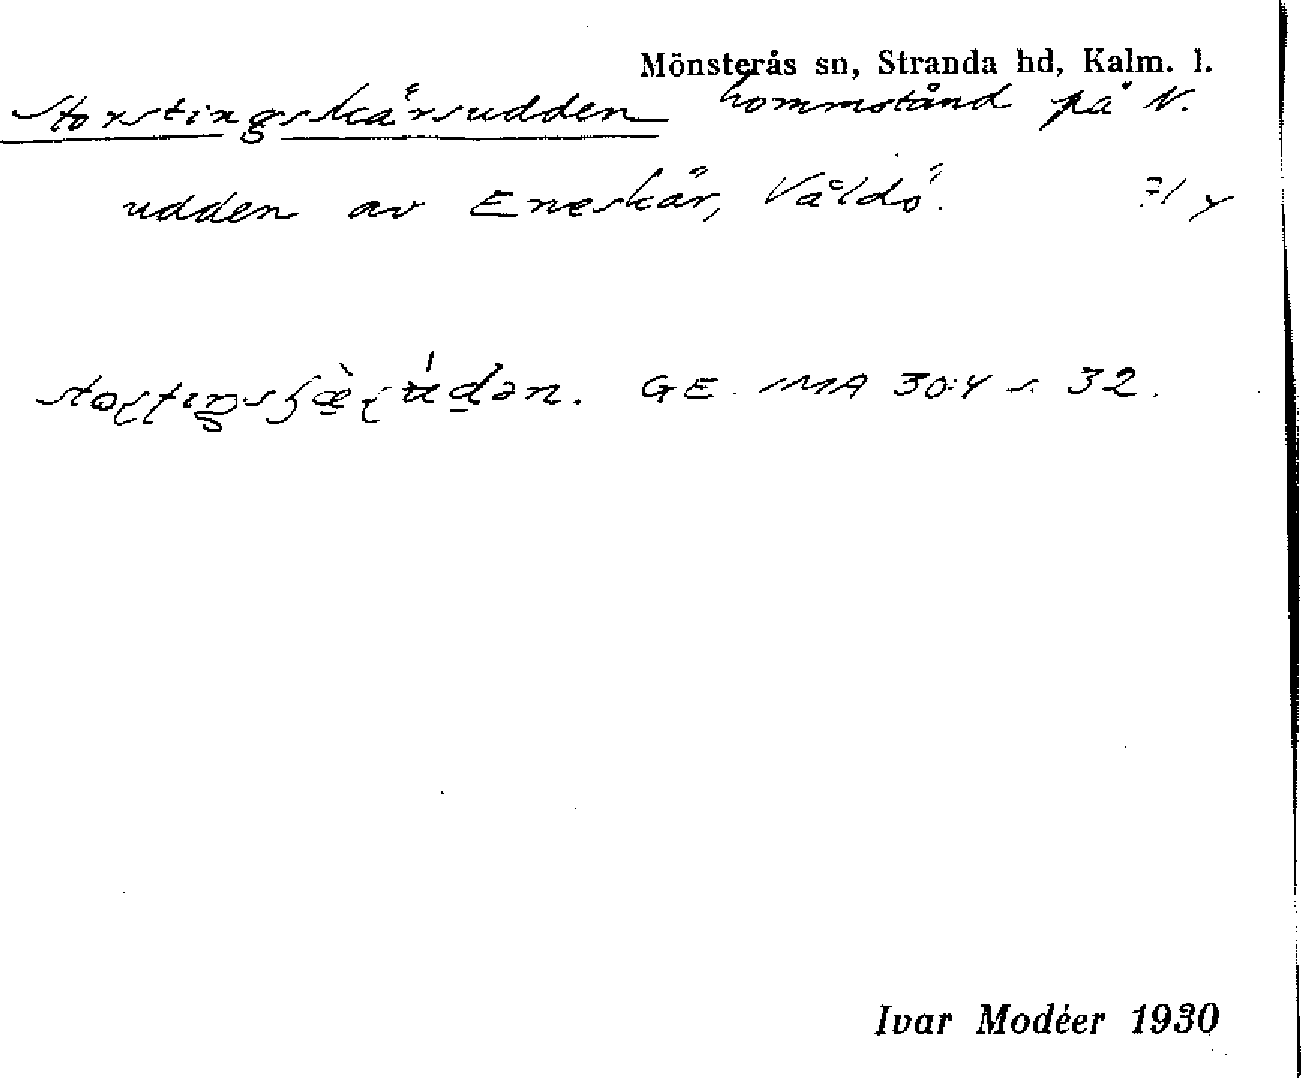 Mönsterås sn, Stranda hd, Kalm. l.
Storstingskärsudden hommstånd på N.
udden av Eneskär, Våldö.
GE. MA 30:4 s. 32.
Ivar Modéer 1930